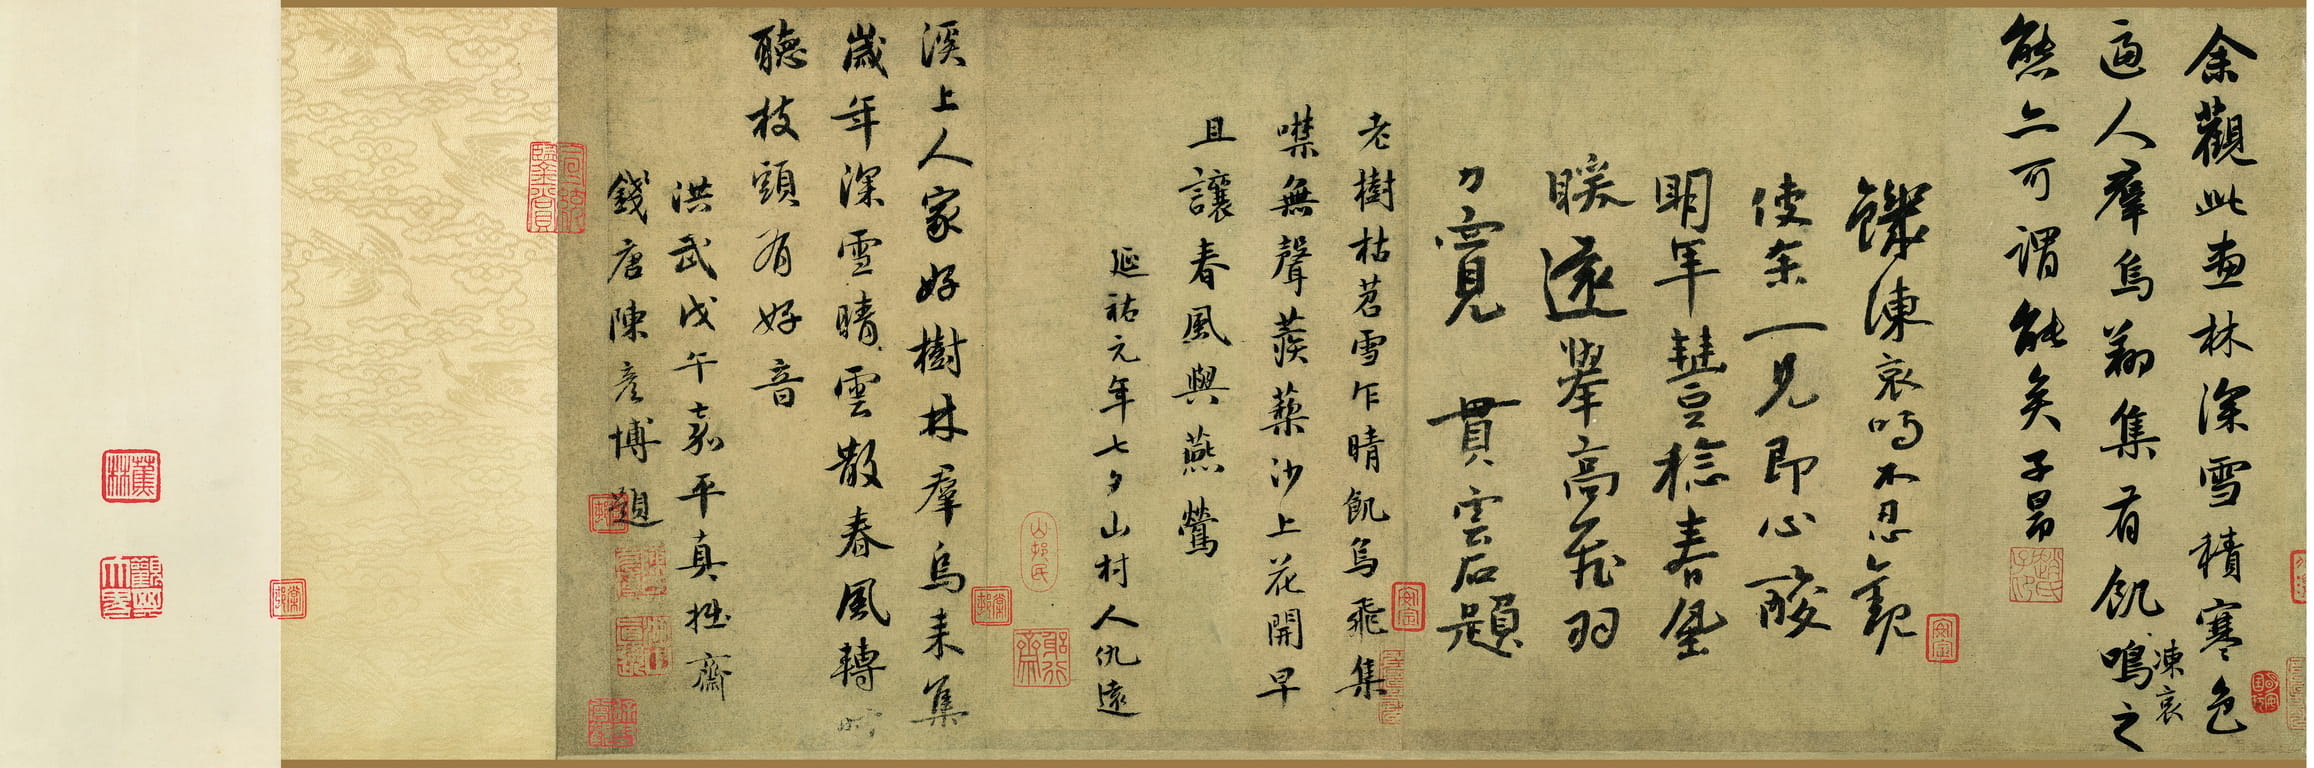 余觀此畫林深雪積寒色
逼人羣烏翔集有飢鳴凍哀之
態亦可謂能矣子昂
饑凍哀鳴不忍觀
使余一見即心酸
明年豐稔春風
暖遠舉高飛羽
力寬 貫雲石題
老樹枯苕雪乍晴飢烏飛集
噤無聲蒺藜沙上花開早
且讓春風與燕鶯
延祐元年七夕山村人仇遠
山邨民
溪上人家好樹林羣烏来集
歲年深雪晴雲散春風轉
聽枝頭有好音
洪武戊午嘉平真拙齋
錢唐陳彥博題
蕉林
觀其大略